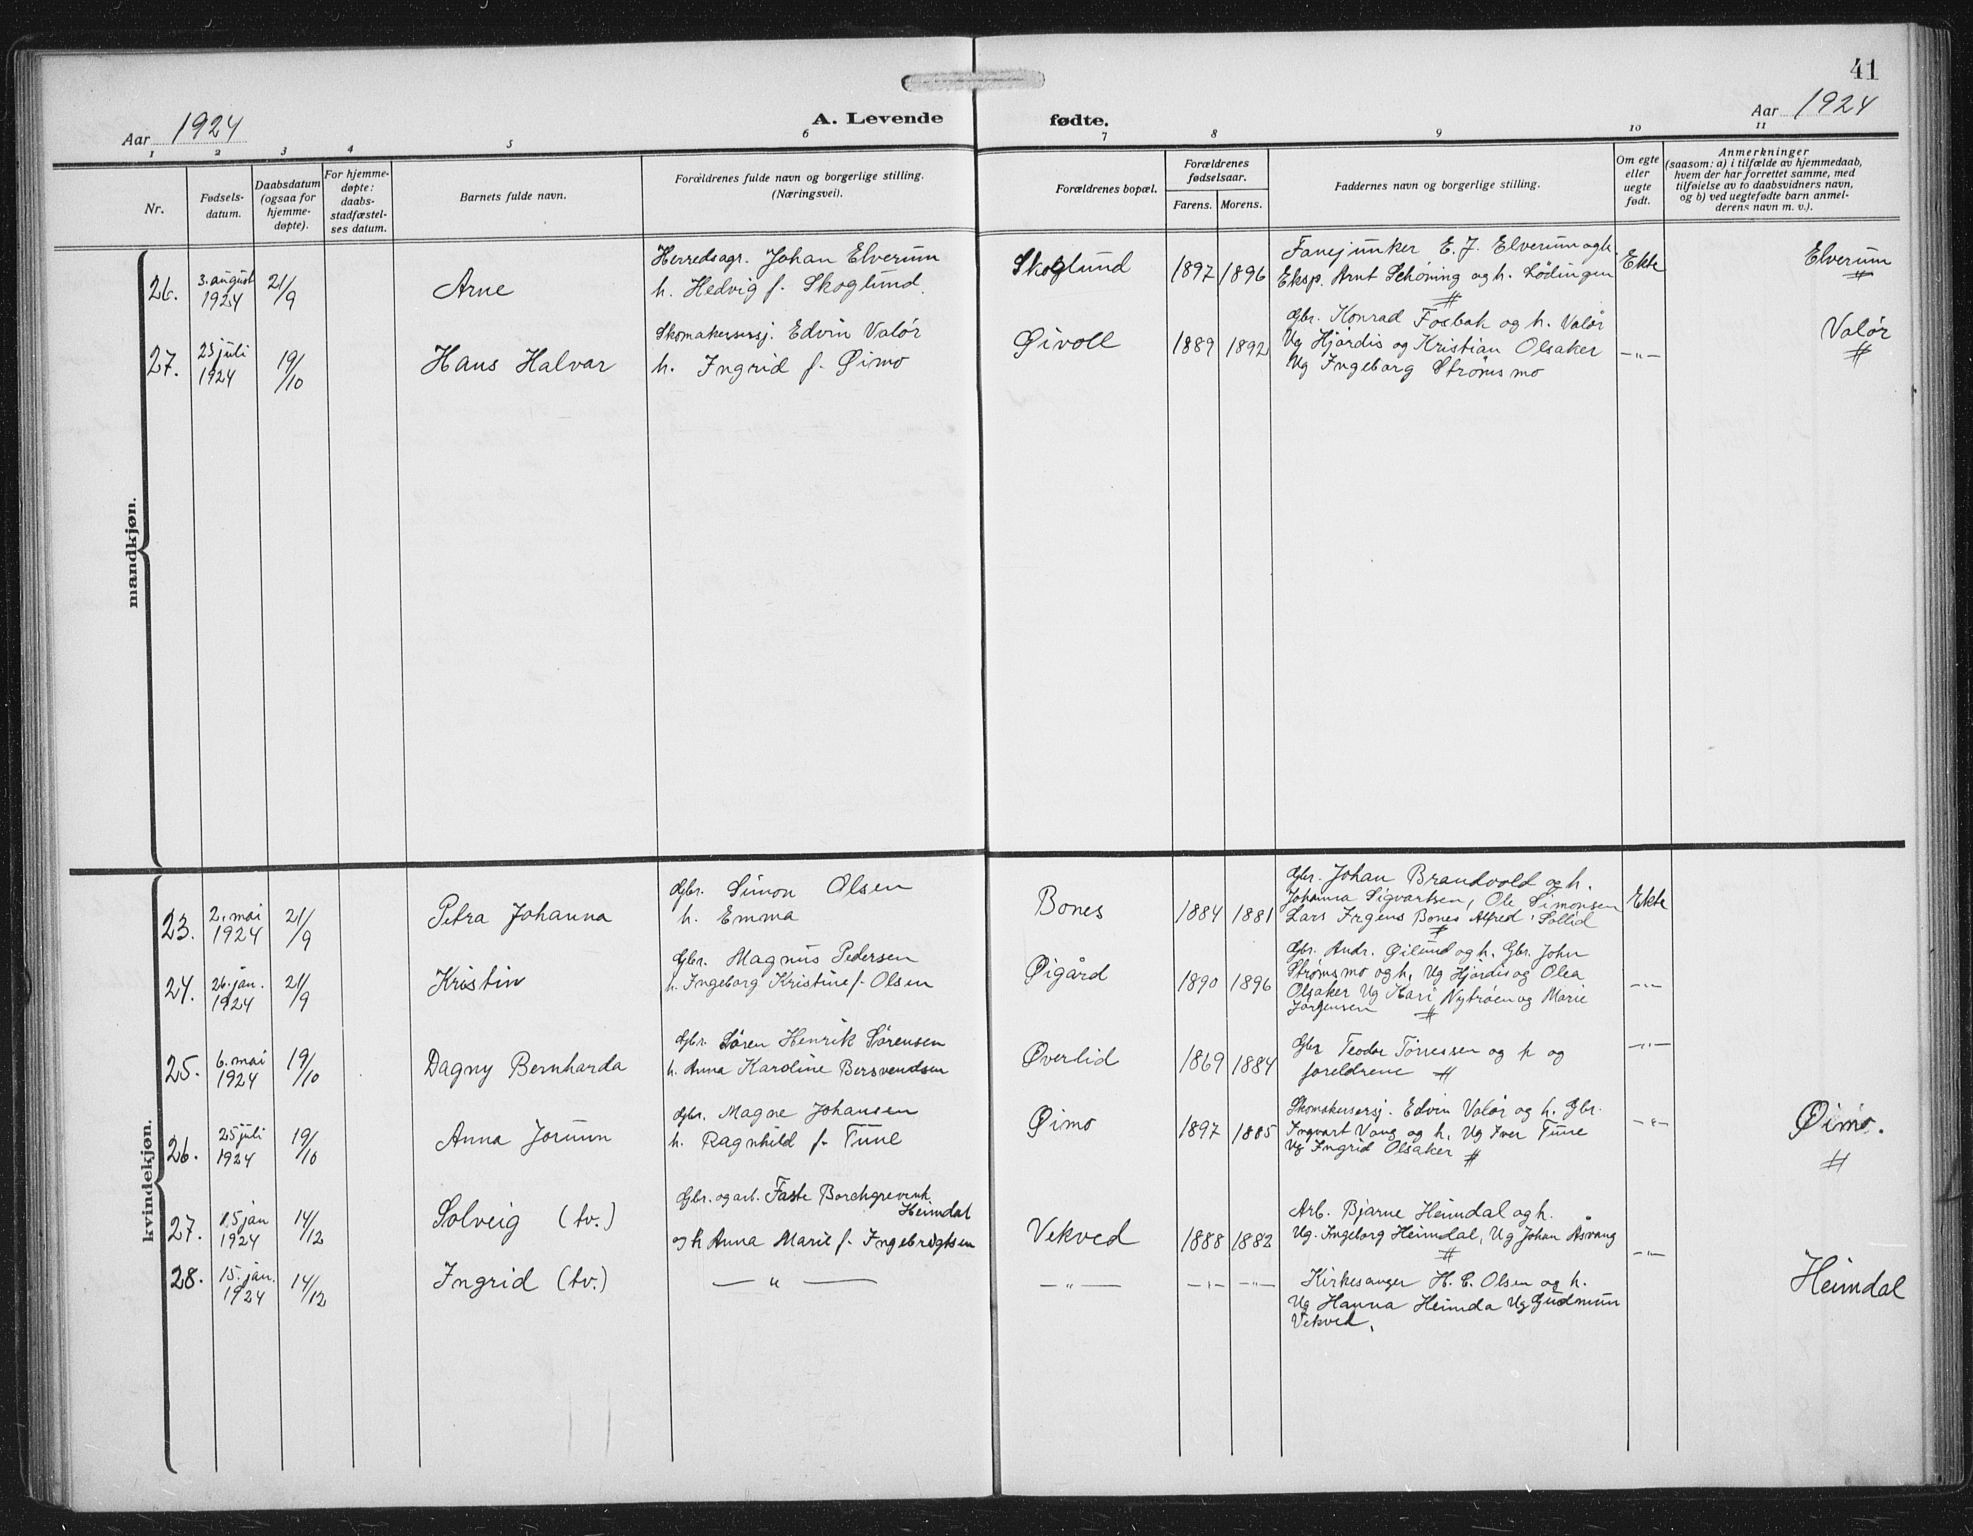 41
Aar 1924
A. Levende fødte.
Aar 1924
1 2 3 4 5 6 7 8 9 10 11
Nr.
Fødsels-
datum.
Daabsdatum
(ogsaa for
hjemme-
døpte).
For hjemme-
døpte:
daabs-
stadfæstel-
ses datum.
Barnets fulde navn.
Forældrenes fulde navn og borgerlige stilling.
(Næringsvei).
Forældrenes bopæl.
Forældrenes
fødselsaar.
Farens. Morens.
Faddernes navn og borgerlige stilling.
Om egte
eller
uegte
født.
Anmerkninger
(saasom: a) i tilfælde av hjemmedaab,
hvem der har forrettet samme, med
tilføielse av to daabsvidners navn,
og b) ved uegtefødte barn anmel-
derens navn m. v.).
mandkjøn.
26.
3. august
1924
21/9
Arne
Herredsagr. Johan Elverum
h. Hedvig f. Skoglund
Skoglund
1897 1896
Fanejunker E. J. Elverum og h.
Eksp. Arnt Schøning og h. Lödingen
#
Ekte
Elverum
#
27.
23 juli
1924
19/10
Hans Halvar
Skomakersersj. Edvin Valör
h. Ingrid f. Øimo
Øivoll
1889 1892
Gbr. Konrad Fosbak og h. Valör
Ug Hjördis og Kristian Olsaker
Ug Ingeborg Strømsmo
—"—
Valör
#
kvindekjøn.
23.
2. mai
1924
21/9
Petra Johanna
Gbr. Simon Olsen
h. Emma
Bones
1884 1881
Gbr. Johan Brandvold og h.
Johanna Sigvartsen, Ole Simonsen
Lars Irgens Bones Alfred Sollid
#
Ekte
24.
26. jan.
1924
21/9
Kristin
Gbr. Magnus Pedersen
h. Ingeborg Kristine f. Olsen
Øigård
1890 1896
Gbr. Andr. Øilund og h. Gbr. John
Strømsmo og h, Ug Hjördis og Olea
Olsaker Ug Kari Nybröen og Marie
Jörgensen #
—"—
25.
6. mai
1924
19/10
Dagny Bernharda
Gbr. Søren Henrik Sørensen
h. Anna Karoline Bersvendsen
Øverlid
1869 1884
Gbr Teodor Törressen og h og
foreldrene #
—"—
26.
25 juli
1924
19/10
Anna Jorunn
Gbr. Magne Johansen
h. Ragnhild f. Tune
Øimo
1897 1885
Skomakersersj. Edvin Valör og h. Gbr.
Ingvart Vang og h, Ug Iver Tune
Ug Ingrid Olsaker #
—"—
Øimo.
#
27.
15 jan
1924
14/12
Solveig (tv.)
Gbr. og arb. Faste Borchgrevink
Heimdal
og h Anna Marie f. Ingebrigtsen
Vekved
1888 1882
Arb. Bjarne Heimdal og h.
Ug. Ingeborg Heimdal, Ug Johan Åsvang
#
—"—
28.
15. jan.
1924
14/12
Ingrid (tv.)
—"—
—"—
—"— —"—
Kirkesanger H. C. Olsen og h.
Ug Hanna Heimda Ug Gudmun
Vekved,
Heimdal